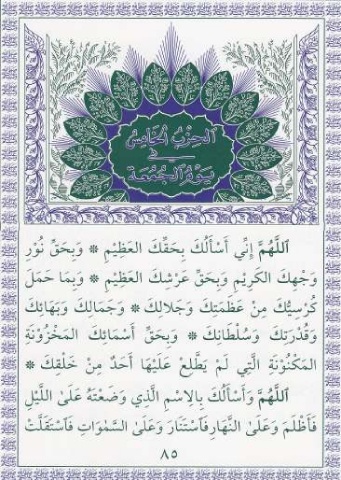 الحزب الخامس
في
يوم الجمعة
اَللَّهُمَّ إِنِّي أَسْأَلُكَ بِحَقِّكَ العَظِيمِ * وَبِحَقِّ نُورِ
وَجْهِكَ الكَرِيمِ وَبِحَقِّ عَرْشِكَ العَظِيمِ * وَبِمَا حَمَلَ
كُرْسِيُّكَ مِنْ عَظَمَتِكَ وَجَلالِكَ * وَجَمَالِكَ وَبَهَائِكَ
وَقُدْرَتِكَ وَسُلْطَانِكَ * وَبِحَقِّ أَسْمَائِكَ المَخْزُونَةِ
المَكْنُونَةِ الَّتِي لَمْ يَطَّلِعْ عَلَيْهَا أَحَدٌ مِنْ خَلْقِكَ *
اَللَّهُمَّ وَأَسْأَلُكَ بِالاِسْمِ الَّذِي وَضَعْتَهُ عَلَىٰ اللَّيْلِ
فَأَظْلَمَ وَعَلَىٰ النَّهَارِ فَاسْتَنَارَ وَعَلَىٰ السَّمَوَاتِ فَاسْتَقَلَّتْ
٨٥